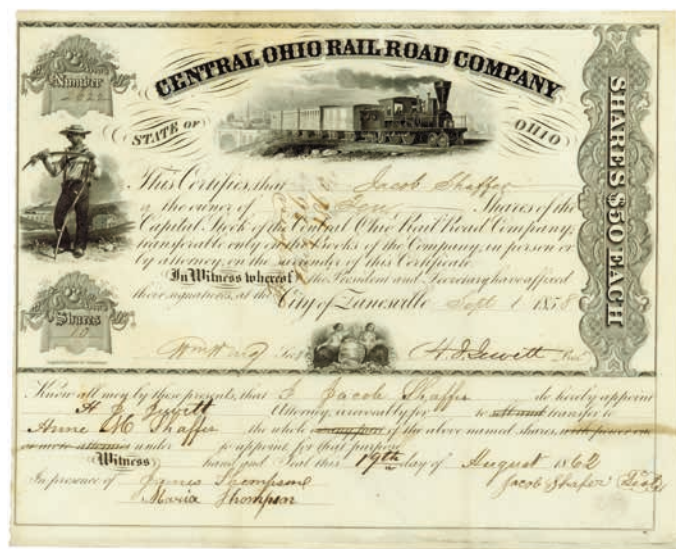 Number
CENTRAL OHIO RAIL ROAD COMPANY
STATE OF OHIO
SHARES $50 EACH
This Certifies, that Jacob Shaffer
is the owner of Ten Shares of the
Capital Stock of the Central Ohio Rail Road Company,
transferable only on the Books of the Company, in person or
by attorney, on the surrender of this Certificate.
In Witness whereof the President and Secretary have affixed
their signatures, at the City of Zanesville Sept 1 1858
Shares
10
Wm Wing Sec. H. J. Jewett Pres.
Know all men by these presents, that I Jacob Shaffer do hereby appoint
H J Jewitt Attorney irrevocably for to sell and transfer to
Anne M Shaffer the whole or any part of the above named shares, with power one
or more attornies under to appoint for that purpose
Witness hand and Seal this 19th day of August 1862
In presence of James Thompson Jacob Shafer
Maria Thompson